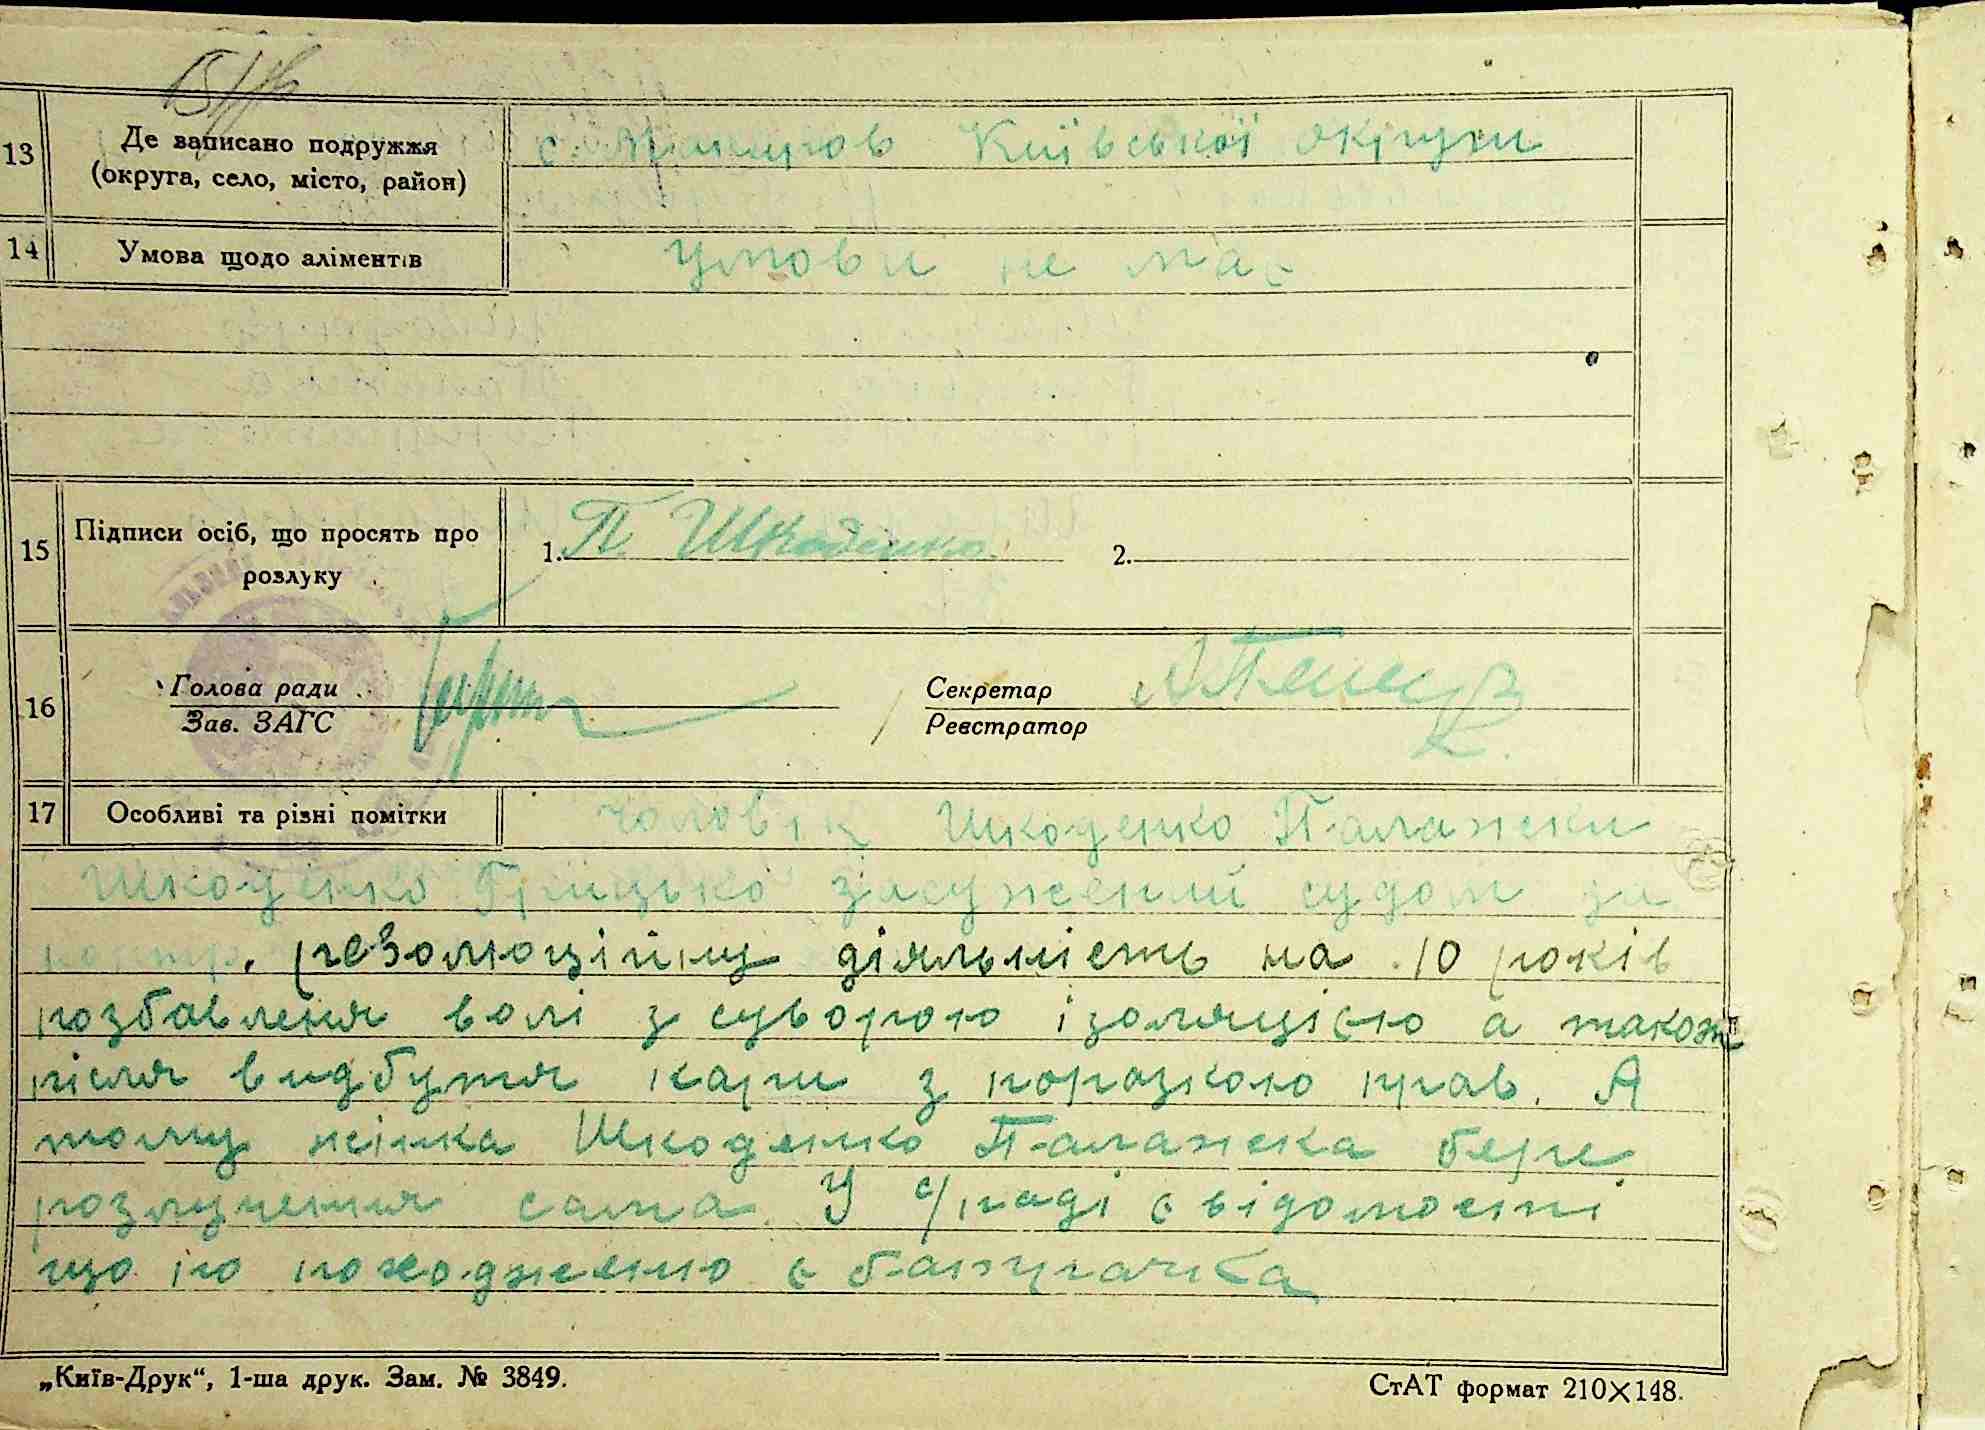 13
Де записано подружжя
(округа, село, місто, район)
с. Київської округи
14
Умова щодо аліментів
умови не має
15
Підписи осіб, що просять про
розлуку
1. П. Шкоденко
2.
16
Голова ради
Зав. ЗАГС
Секретар
Реєстратор
17
Особливі та різні помітки
чоловік Шкоденко Палажски
Шкоденко Грицько засужений судом за
контр. резолюційну діяльність на 10 років
розбавленя волі з суворою ізоляцією а також
після видбутя кари з поразкою прав. А
тому жінка Шкоденко Палажска бере
розлучення сама. У с/раді є відомості
що по походженю є батрачка
„Київ-Друк“, 1-ша друк. Зам. № 3849.
СтАТ формат 210×148.